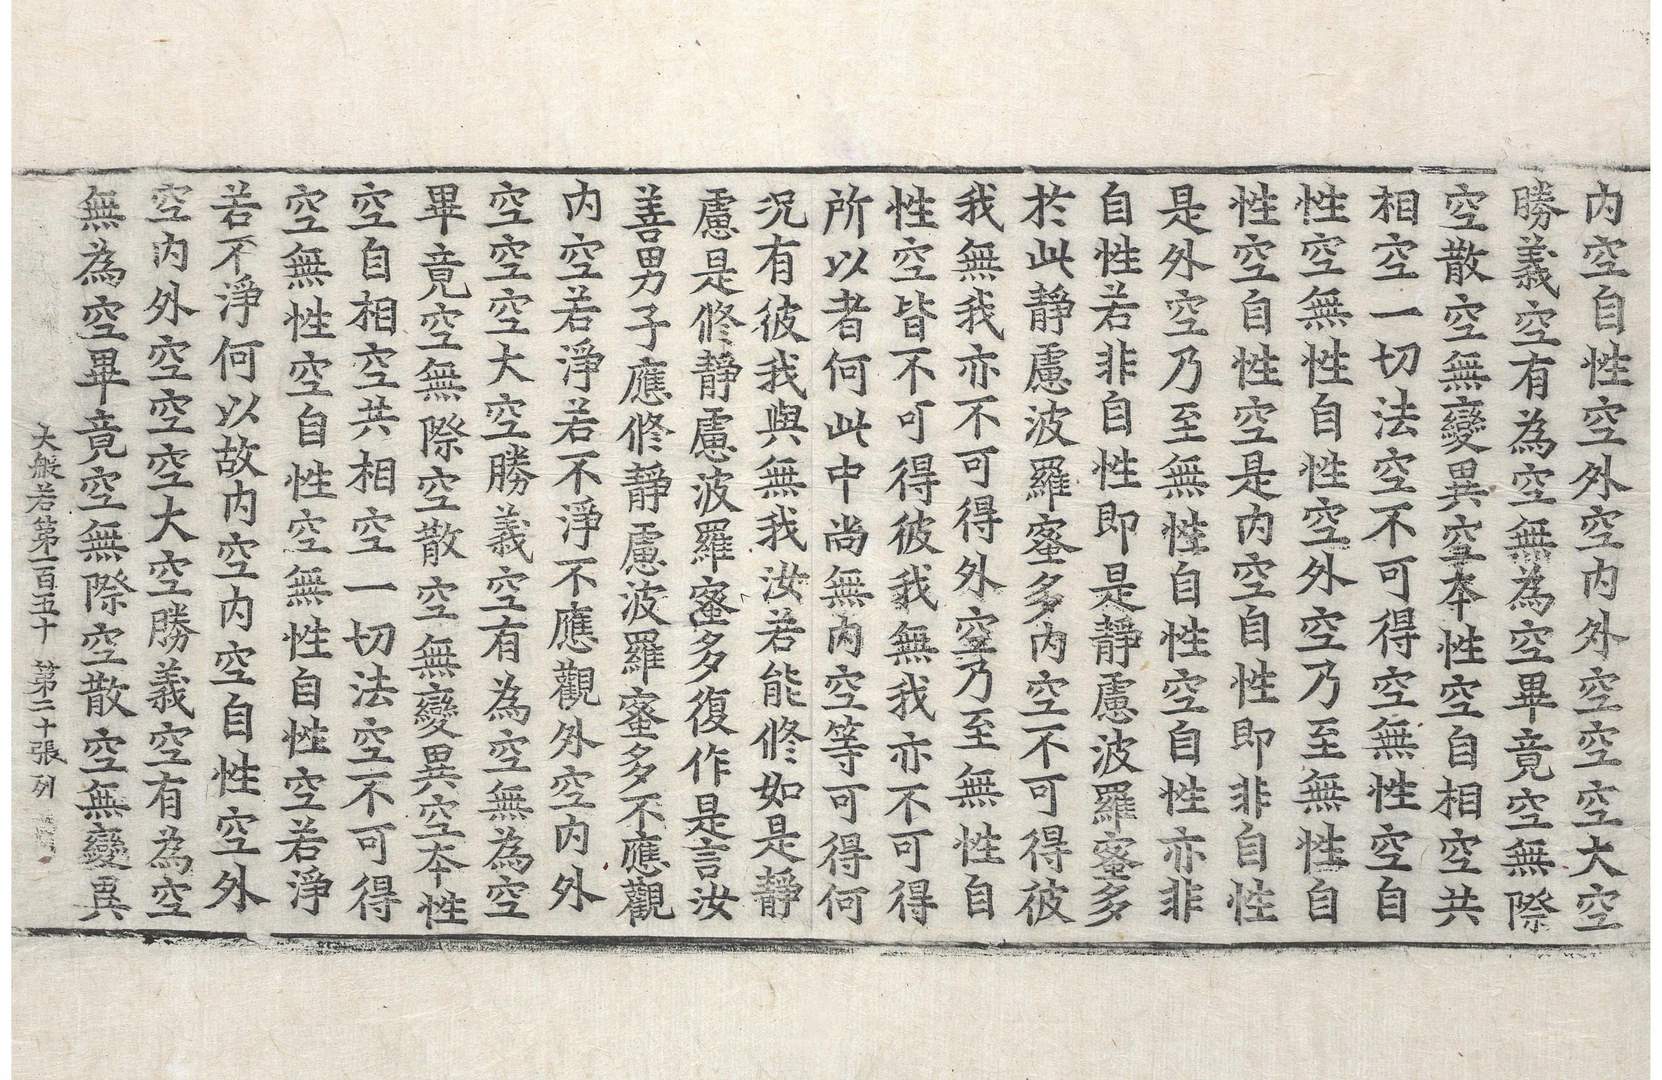 内空自性空外空内外空空空大空
勝義空有為空無為空畢竟空無際
空散空無變異空本性空自相空共
相空一切法空不可得空無性空自
性空無性自性空外空乃至無性自
性空自性空是内空自性即非自性
是外空乃至無性自性空自性亦非
自性若非自性即是靜慮波羅蜜多
於此靜慮波羅蜜多内空不可得彼
我無我亦不可得外空乃至無性自
性空皆不可得彼我無我亦不可得
所以者何此中尚無内空等可得何
況有彼我與無我汝若能修如是靜
慮是修靜慮波羅蜜多復作是言汝
善男子應修靜慮波羅蜜多不應觀
内空若淨若不淨不應觀外空内外
空空空大空勝義空有為空無為空
畢竟空無際空散空無變異空本性
空自相空共相空一切法空不可得
空無性空自性空無性自性空若淨
若不淨何以故内空内空自性空外
空内外空空空大空勝義空有為空
無為空畢竟空無際空散空無變異
大般若第一百五十 第二十張 列